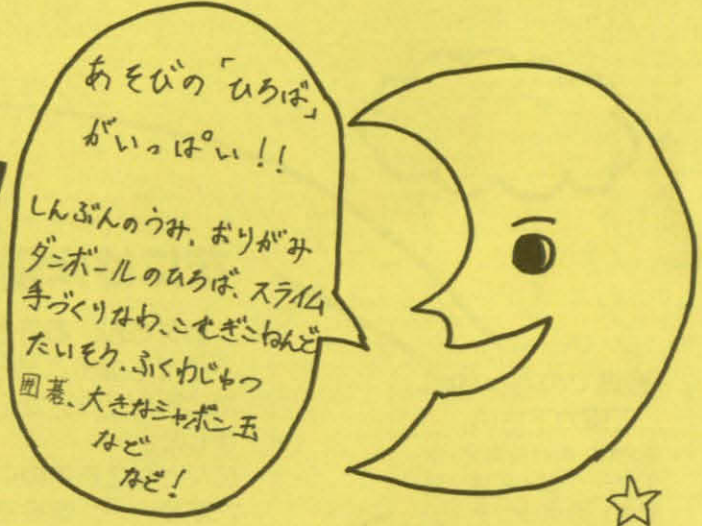 あそびの「ひろば」
がいっぱい!!
しんぶんのうみ、おりがみ
ダンボールのひろば、スライム
手づくりなわ、こむぎこねんど
たいそう、ふくわじゅつ
囲碁、大きなシャボン玉
などなど!